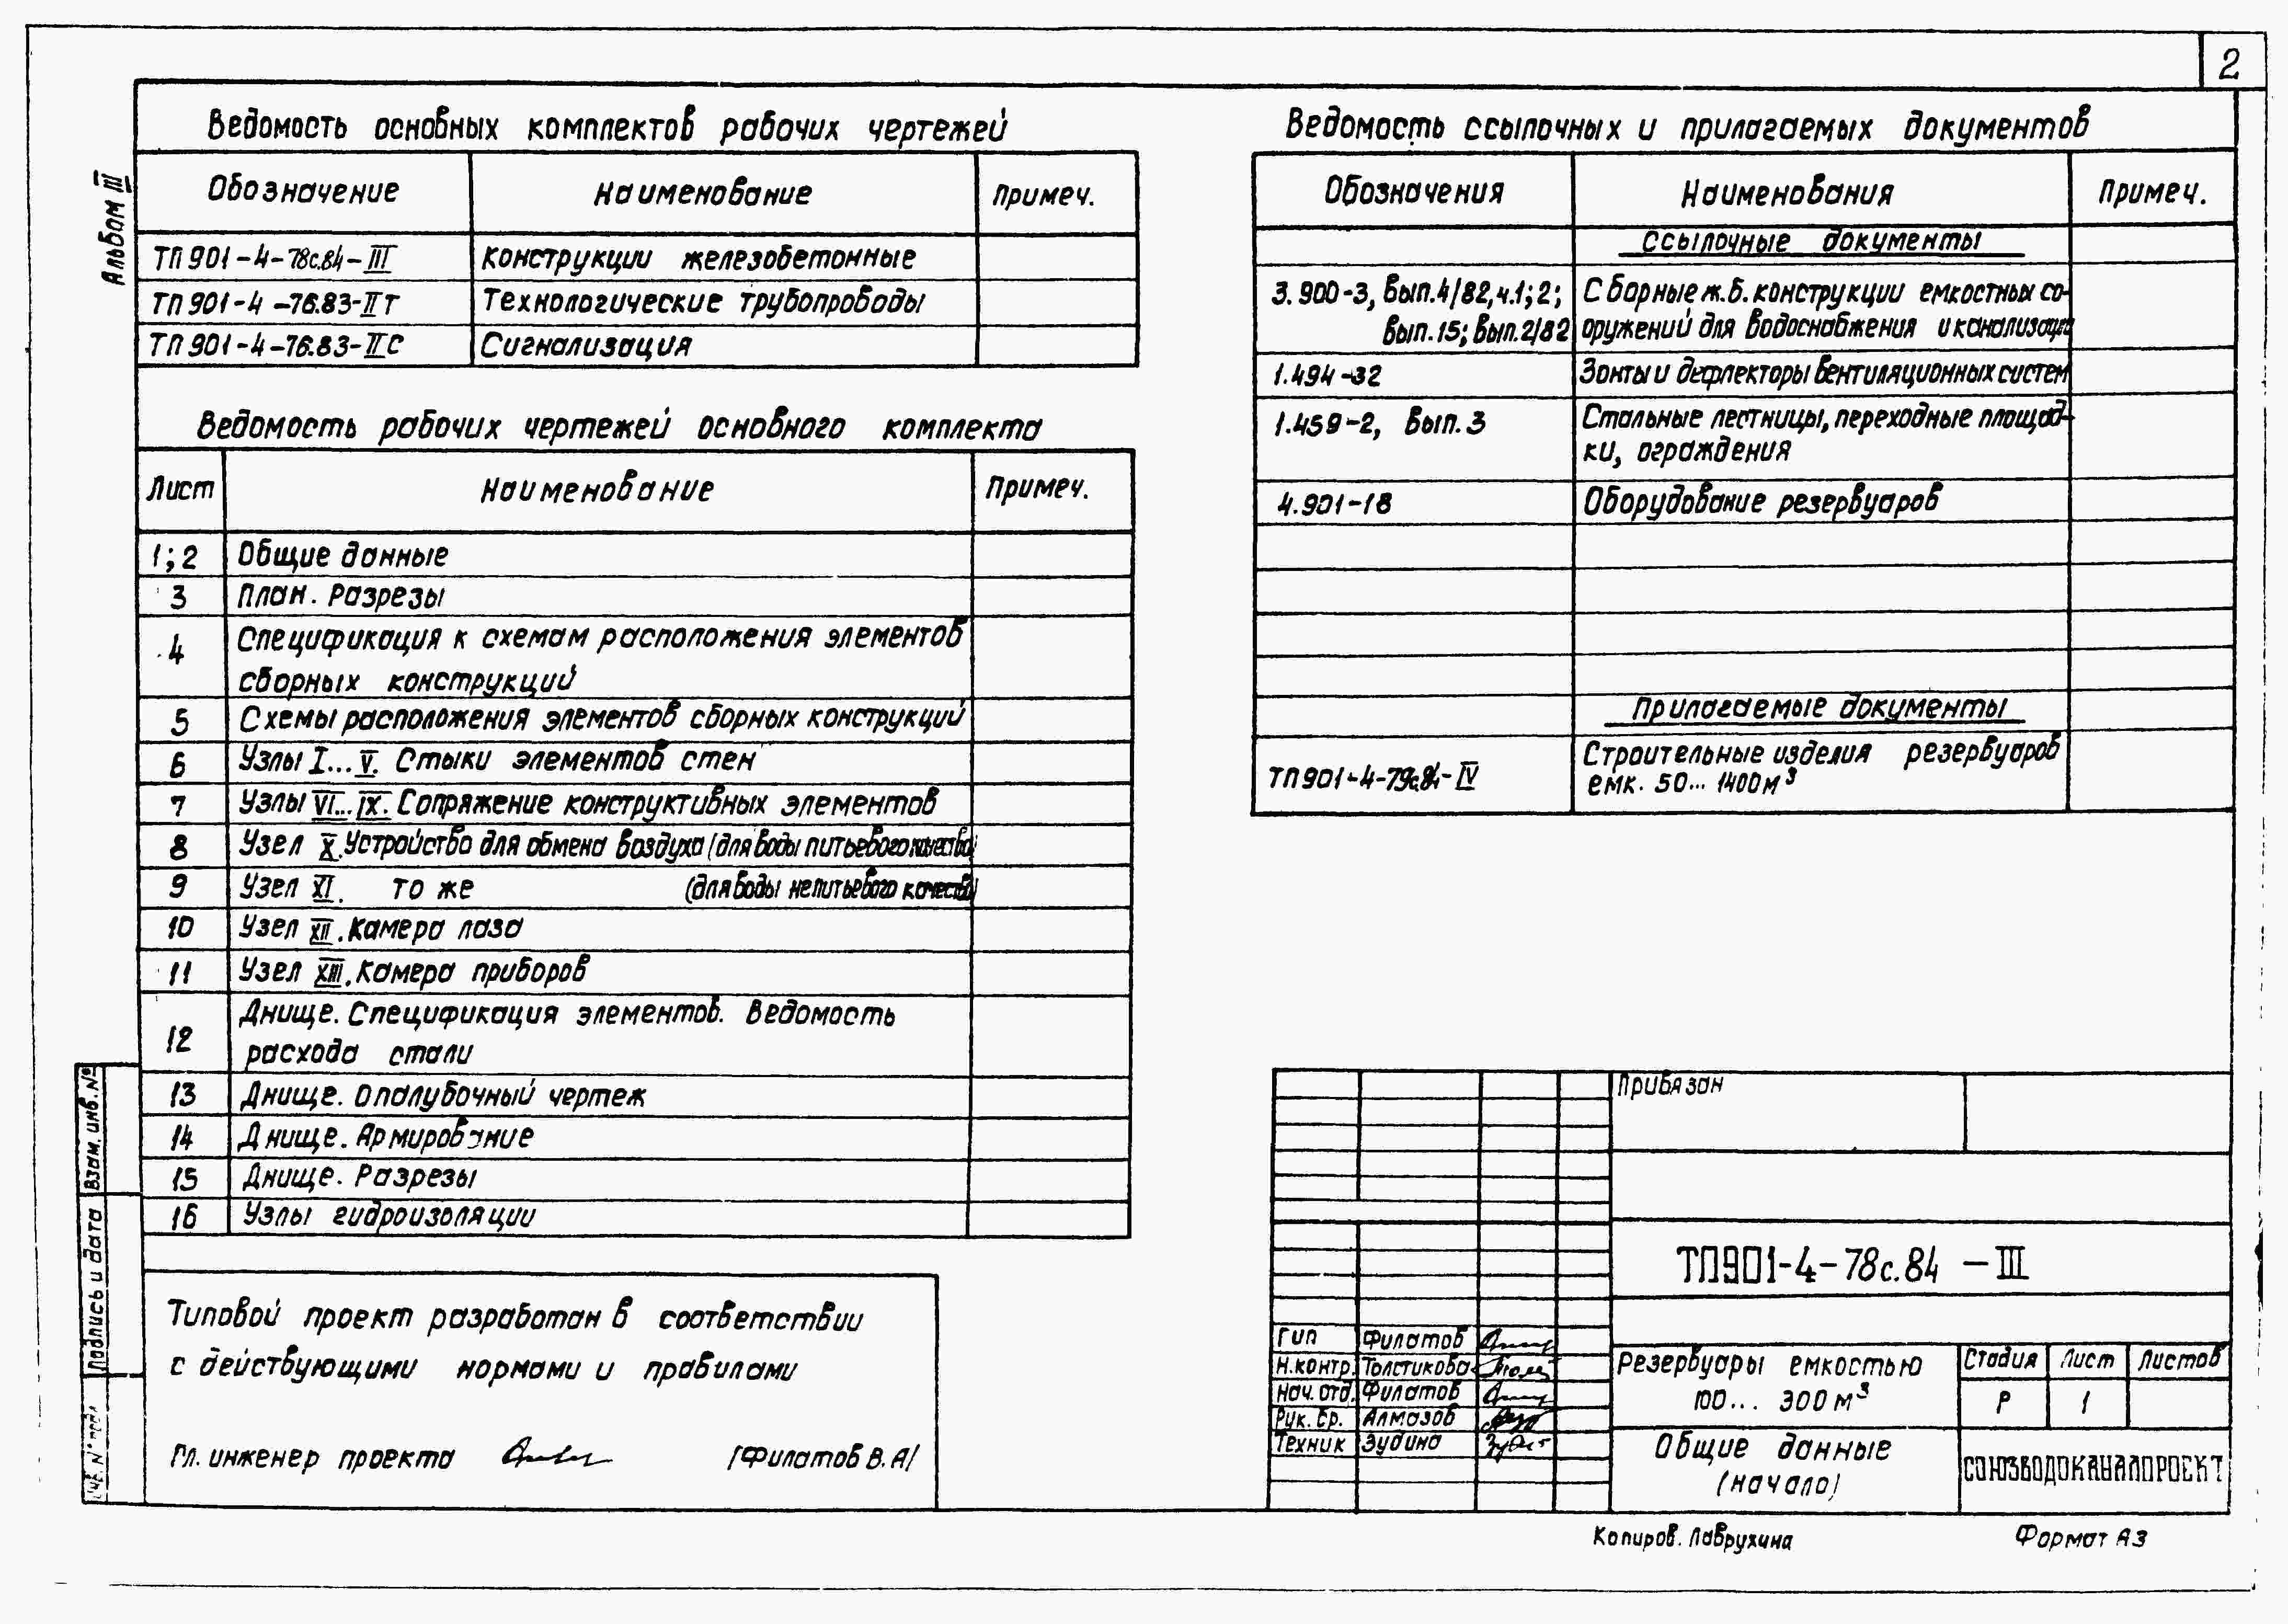 2
Альбом III
Ведомость основных комплектов рабочих чертежей
Обозначение Наименование Примеч.
ТП 901-4-78с.84-III Конструкции железобетонные
ТП 901-4-76.83-II Т Технологические трубопроводы
ТП 901-4-76.83-II С Сигнализация
Ведомость рабочих чертежей основного комплекта
Лист Наименование Примеч.
1; 2 Общие данные
3 План. Разрезы
4 Спецификация к схемам расположения элементов
сборных конструкций
5 Схемы расположения элементов сборных конструкций
6 Узлы I...V. Стыки элементов стен
7 Узлы VI...IX. Сопряжение конструктивных элементов
8 Узел X. Устройство для обмена воздуха (для воды питьевого качества)
9 Узел XI. то же (для воды непитьевого качества)
10 Узел XII. Камера лаза
11 Узел XIII. Камера приборов
12 Днище. Спецификация элементов. Ведомость
расхода стали
13 Днище. Опалубочный чертеж
14 Днище. Армирование
15 Днище. Разрезы
16 Узлы гидроизоляции
Типовой проект разработан в соответствии
с действующими нормами и правилами
Гл. инженер проекта /Филатов В.А/
Взам. инв. №
Подпись и дата
Ведомость ссылочных и прилагаемых документов
Обозначения Наименования Примеч.
Ссылочные документы
3.900-3, вып.4/82, ч.1; 2; Сборные ж.б. конструкции емкостных со-
вып.15; вып.2/82 оружений для водоснабжения и канализации
1.494-32 Зонты и дефлекторы вентиляционных систем
1.459-2, вып. 3 Стальные лестницы, переходные площад-
ки, ограждения
4.901-18 Оборудование резервуаров
Прилагаемые документы
ТП 901-4-79с.84-IV Строительные изделия резервуаров
емк. 50... 1400 м³
Привязан
ТП901-4-78с.84 -III
Гип Филатов
Н.контр. Толстикова
Нач. отд. Филатов
Рук. бр. Алмазов
Техник Зудина
Резервуары емкостью
100... 300 м³
Стадия Лист Листов
Р 1
Общие данные
(начало)
СОЮЗВОДОКАНАЛПРОЕКТ
Копиров. Лаврухина Формат А3